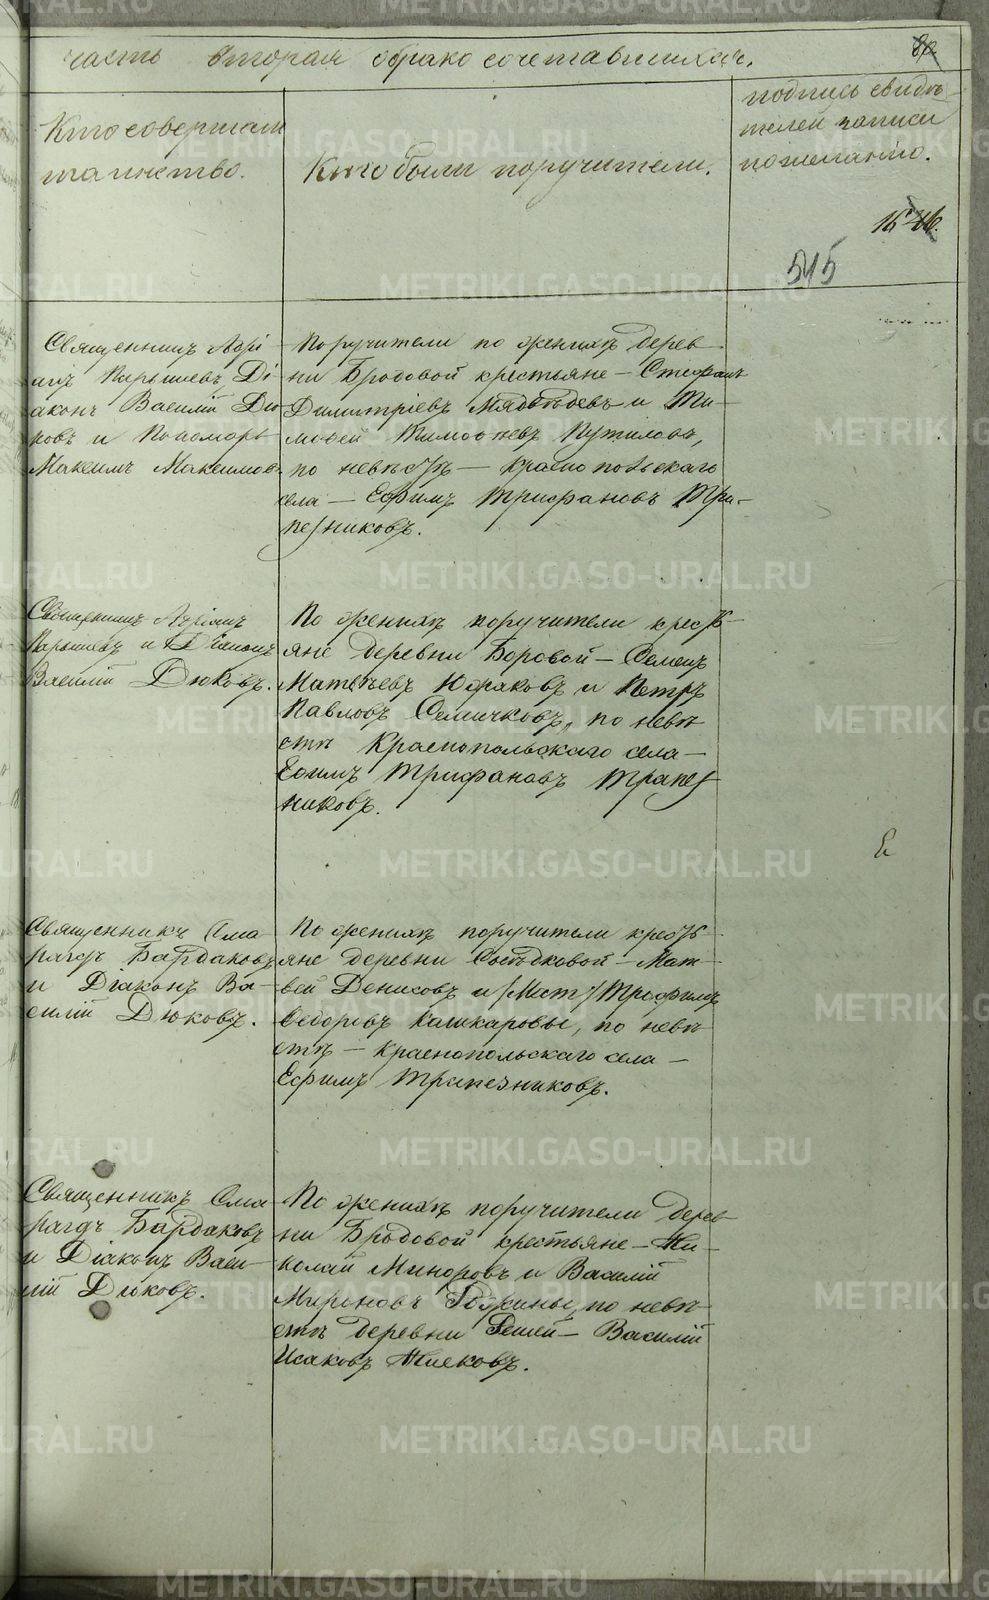 часть вторая о бракосочетавшихся.
Кто совершал
таинство.
Кто были поручители.
подпись свидѣ-
телей записи
по желанію.
515
Священникъ
Парышевъ, Ді-
аконъ Василій Дю-
ковъ и Пономарь
Максимъ Максимов.
Поручители по женихѣ дерев-
ни Бродовой крестьяне — Стефанъ
Димитріевъ Мядвѣдевъ и Ти-
моѳей Тимоѳеевъ Путиловъ,
по невѣстѣ — Краснопольскаго
села — Ефимъ Трифановъ Тра-
пезниковъ.
Священникъ
Парышевъ и Діаконъ
Василій Дюковъ.
По женихѣ поручители кресть-
яне деревни Боровой — Семенъ
Матвѣевъ и Петръ
Павловъ Семичковъ, по невѣ-
стѣ Краснопольскаго села —
Ефимъ Трифановъ Трапез-
никовъ.
Священникъ Сма-
рагдъ Бардаковъ
и Діаконъ Ва-
силій Дюковъ.
По женихѣ поручители кресть-
яне деревни Сосѣдковой — Мат-
вей Денисовъ и /Мат/ Трофимъ
Ѳедоровъ Кашкаровы, по невѣ-
стѣ — Краснопольскаго села —
Ефимъ Трапезниковъ.
Священникъ Сма-
рагдъ Бардаковъ
и Діаконъ Васи-
лій Дюковъ.
По женихѣ поручители дерев-
ни Бродовой крестьяне — Ни-
колай Миноровъ и Василій
Мироновъ, по невѣ-
стѣ деревни — Василій
Исаковъ
METRIKI.GASO-URAL.RU